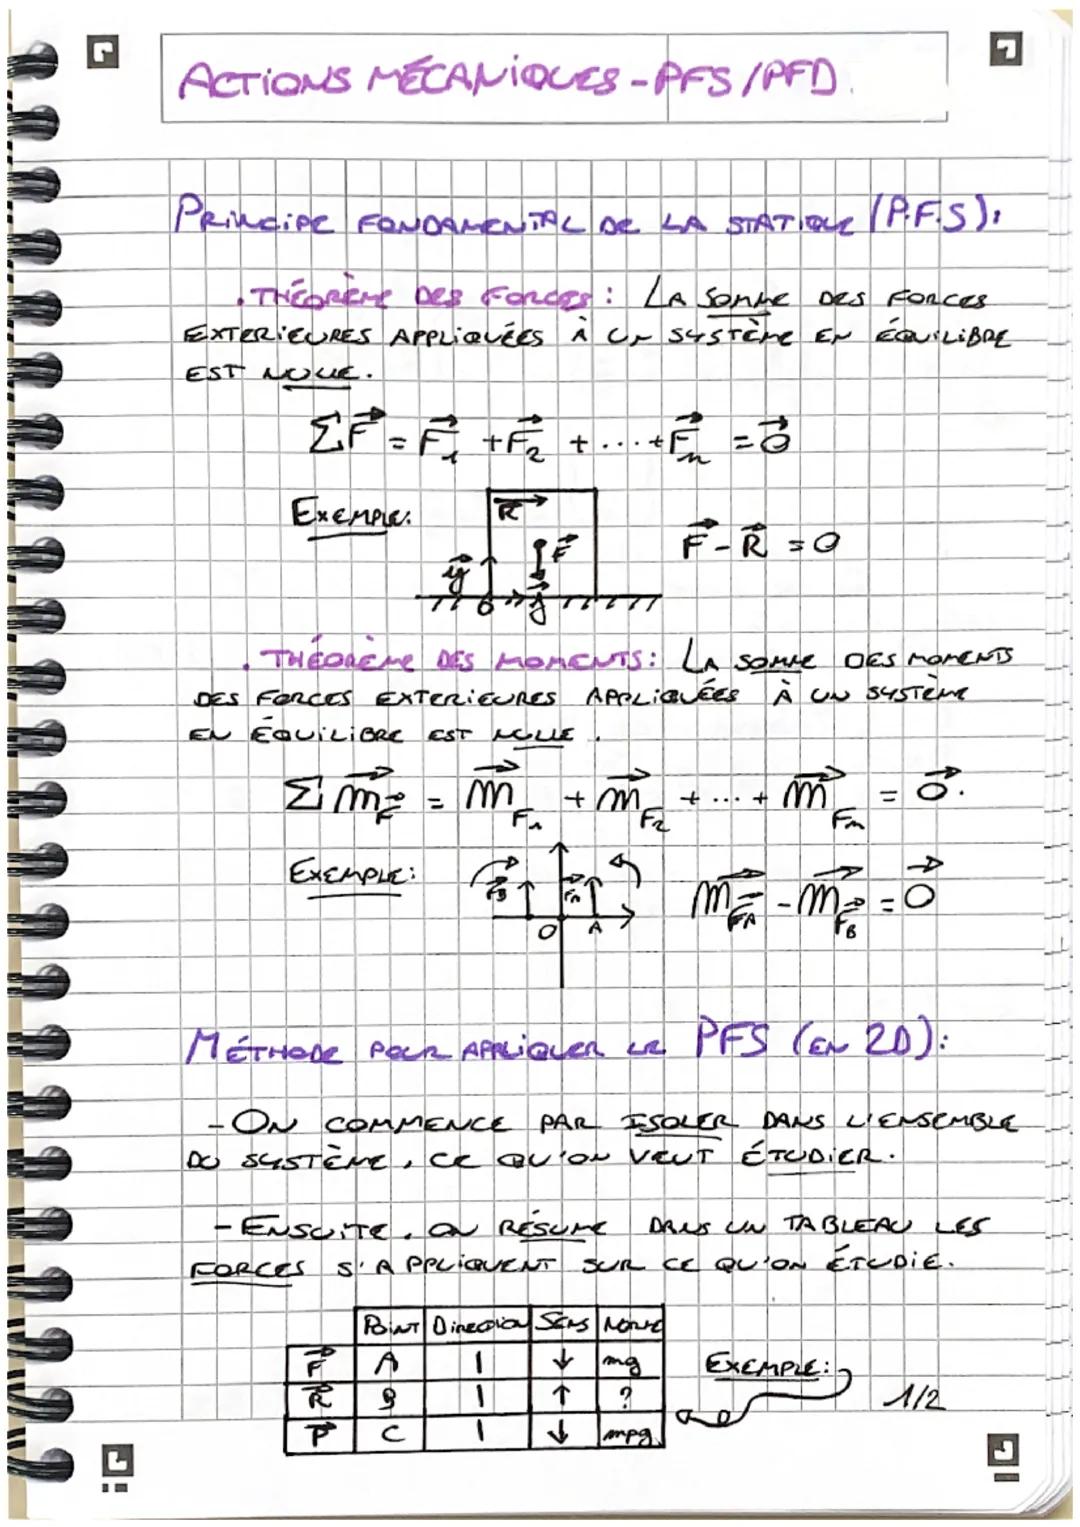 ACTIONS MÉCANIQUES - PFS/PFD.
PRINCIPE FONDAMENTAL DE LA STATIQUE (P.F.S):
. THÉORÈME DES FORCES : LA SOMME DES FORCES
EXTERIEURES APPLIQUÉES À UN SYSTÈME EN ÉQUILIBRE
EST NULLE.
ΣF⃗ = F⃗₁ + F⃗₂ + ... + F⃗ₙ = 0⃗
EXEMPLE:
R⃗
F⃗
y⃗
F⃗ - R⃗ = 0
. THÉORÈME DES MOMENTS: LA SOMME DES MOMENTS
DES FORCES EXTERIEURES APPLIQUÉES À UN SYSTÈME
EN ÉQUILIBRE EST NULLE.
Σ m⃗F⃗ = m⃗F₁ + m⃗F₂ + ... + m⃗Fₙ = 0⃗.
EXEMPLE:
F⃗B F⃗A
O A
m⃗F⃗A - m⃗F⃗B = 0⃗
MÉTHODE POUR APPLIQUER LE PFS (EN 2D):
- ON COMMENCE PAR ISOLER DANS L'ENSEMBLE
DU SYSTÈME, CE QU'ON VEUT ÉTUDIER.
- ENSUITE, ON RÉSUME DANS UN TABLEAU LES
FORCES S'APPLIQUENT SUR CE QU'ON ÉTUDIE.
POINT DIRECTION SENS NORME
F⃗ A | ↓ mg
R⃗ B | ↑ ?
P⃗ C | ↓ mpg
EXEMPLE:
1/2